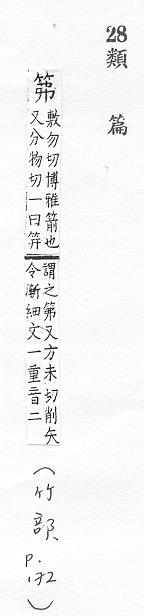 28
類篇
笰
敷勿切博雅箭也
又分物切一曰笄
謂之笰又方未切削矢
令漸細文一重音二
(竹部
p.
172)